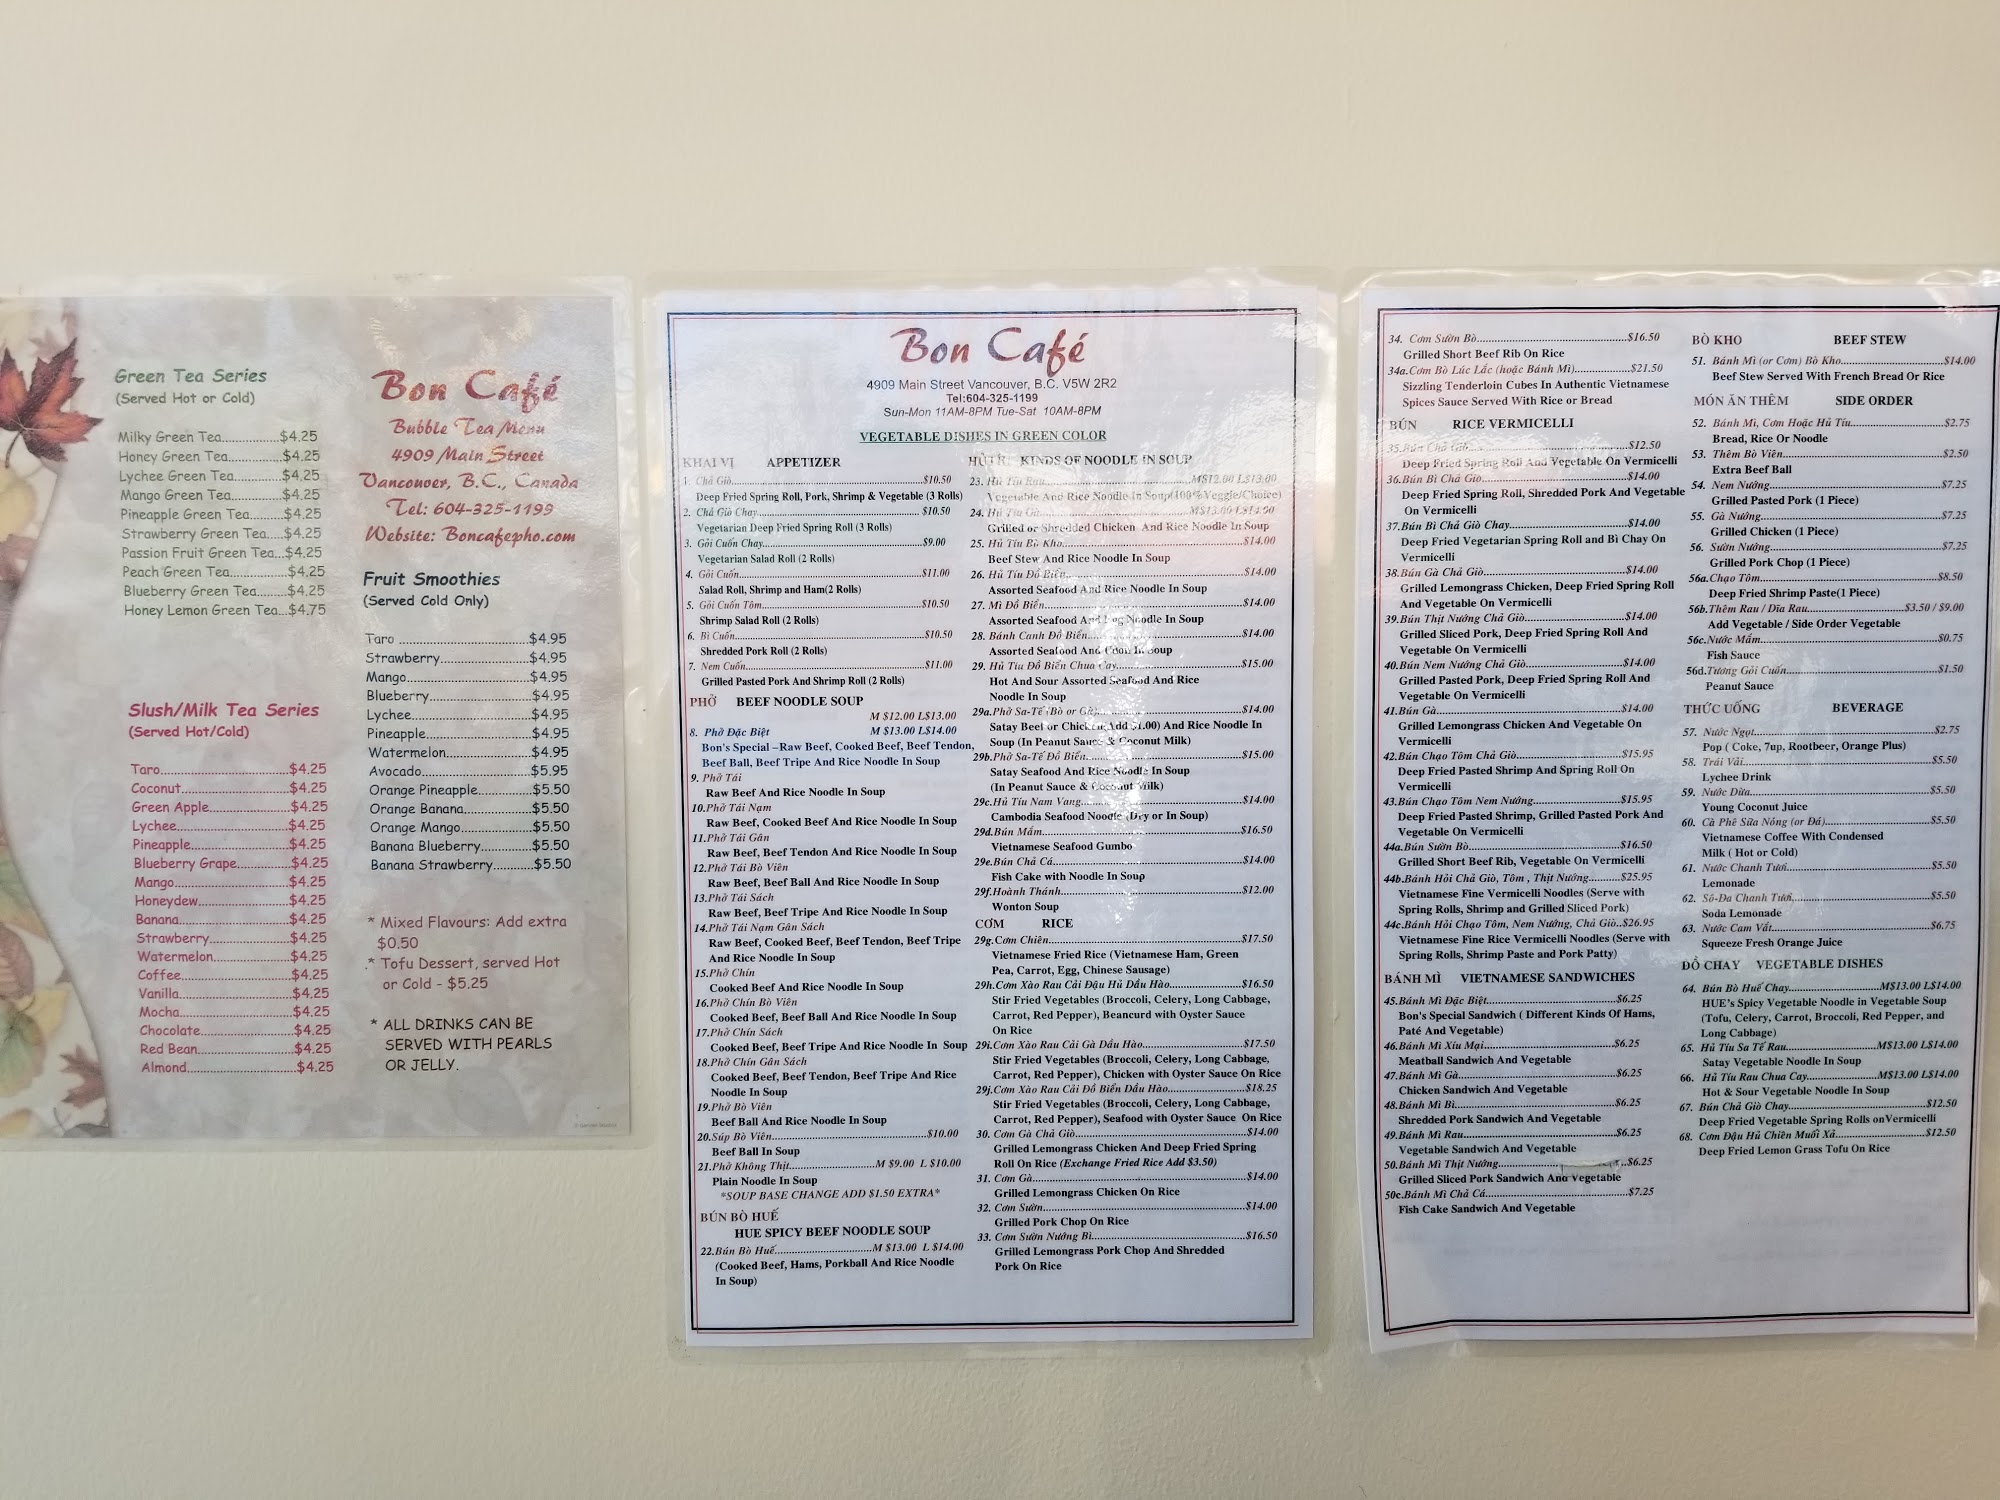 Green Tea Series
(Served Hot or Cold)
Milky Green Tea...............$4.25
Honey Green Tea..............$4.25
Lychee Green Tea.............$4.25
Mango Green Tea.............$4.25
Pineapple Green Tea.........$4.25
Strawberry Green Tea.....$4.25
Passion Fruit Green Tea...$4.25
Peach Green Tea..............$4.25
Blueberry Green Tea........$4.25
Honey Lemon Green Tea...$4.75
Slush/Milk Tea Series
(Served Hot/Cold)
Taro..............................$4.25
Coconut.........................$4.25
Green Apple....................$4.25
Lychee..........................$4.25
Pineapple.......................$4.25
Blueberry Grape.............$4.25
Mango...........................$4.25
Honeydew......................$4.25
Banana..........................$4.25
Strawberry....................$4.25
Watermelon...................$4.25
Coffee..........................$4.25
Vanilla..........................$4.25
Mocha...........................$4.25
Chocolate......................$4.25
Red Bean.......................$4.25
Almond.........................$4.25
Bon Café
Bubble Tea Menu
4909 Main Street
Vancouver, B.C., Canada
Tel: 604-325-1199
Website: Boncafepho.com
Fruit Smoothies
(Served Cold Only)
Taro ..............................$4.95
Strawberry....................$4.95
Mango...........................$4.95
Blueberry......................$4.95
Lychee..........................$4.95
Pineapple.......................$4.95
Watermelon...................$4.95
Avocado........................$5.95
Orange Pineapple............$5.50
Orange Banana...............$5.50
Orange Mango................$5.50
Banana Blueberry............$5.50
Banana Strawberry..........$5.50
* Mixed Flavours: Add extra
$0.50
.* Tofu Dessert, served Hot
or Cold - $5.25
* ALL DRINKS CAN BE
SERVED WITH PEARLS
OR JELLY.
Bon Café
4909 Main Street Vancouver, B.C. V5W 2R2
Tel:604-325-1199
Sun-Mon 11AM-8PM Tue-Sat 10AM-8PM
VEGETABLE DISHES IN GREEN COLOR
KHAI VỊ APPETIZER
1. Chả Giò...............$10.50
Deep Fried Spring Roll, Pork, Shrimp & Vegetable (3 Rolls)
2. Chả Giò Chay...............$10.50
Vegetarian Deep Fried Spring Roll (3 Rolls)
3. Gỏi Cuốn Chay...............$9.00
Vegetarian Salad Roll (2 Rolls)
4. Gỏi Cuốn...............$11.00
Salad Roll, Shrimp and Ham(2 Rolls)
5. Gỏi Cuốn Tôm...............$10.50
Shrimp Salad Roll (2 Rolls)
6. Bì Cuốn...............$10.50
Shredded Pork Roll (2 Rolls)
7. Nem Cuốn...............$11.00
Grilled Pasted Pork And Shrimp Roll (2 Rolls)
PHỞ BEEF NOODLE SOUP
M $12.00 L$13.00
8. Phở Đặc Biệt M $13.00 L$14.00
Bon's Special –Raw Beef, Cooked Beef, Beef Tendon,
Beef Ball, Beef Tripe And Rice Noodle In Soup
9. Phở Tái
Raw Beef And Rice Noodle In Soup
10.Phở Tái Nạm
Raw Beef, Cooked Beef And Rice Noodle In Soup
11.Phở Tái Gân
Raw Beef, Beef Tendon And Rice Noodle In Soup
12.Phở Tái Bò Viên
Raw Beef, Beef Ball And Rice Noodle In Soup
13.Phở Tái Sách
Raw Beef, Beef Tripe And Rice Noodle In Soup
14.Phở Tái Nạm Gân Sách
Raw Beef, Cooked Beef, Beef Tendon, Beef Tripe
And Rice Noodle In Soup
15.Phở Chín
Cooked Beef And Rice Noodle In Soup
16.Phở Chín Bò Viên
Cooked Beef, Beef Ball And Rice Noodle In Soup
17.Phở Chín Sách
Cooked Beef, Beef Tripe And Rice Noodle In Soup
18.Phở Chín Gân Sách
Cooked Beef, Beef Tendon, Beef Tripe And Rice
Noodle In Soup
19.Phở Bò Viên
Beef Ball And Rice Noodle In Soup
20.Súp Bò Viên...............$10.00
Beef Ball In Soup
21.Phở Không Thịt...............M $9.00 L $10.00
Plain Noodle In Soup
*SOUP BASE CHANGE ADD $1.50 EXTRA*
BÚN BÒ HUẾ
HUE SPICY BEEF NOODLE SOUP
22.Bún Bò Huế...............M $13.00 L $14.00
(Cooked Beef, Hams, Porkball And Rice Noodle
In Soup)
HỦ TIẾU KINDS OF NOODLE IN SOUP
23. Hủ Tíu Rau...............M$12.00 L$13.00
Vegetable And Rice Noodle In Soup(100%Veggie/Choice)
24. Hủ Tíu Gà...............M$13.00 L$14.00
Grilled or Shredded Chicken And Rice Noodle In Soup
25. Hủ Tíu Bò Kho...............$14.00
Beef Stew And Rice Noodle In Soup
26. Hủ Tíu Đồ Biển...............$14.00
Assorted Seafood And Rice Noodle In Soup
27. Mì Đồ Biển...............$14.00
Assorted Seafood And Egg Noodle In Soup
28. Bánh Canh Đồ Biển...............$14.00
Assorted Seafood And Udon In Soup
29. Hủ Tíu Đồ Biển Chua Cay...............$15.00
Hot And Sour Assorted Seafood And Rice
Noodle In Soup
29a.Phở Sa-Tế (Bò or Gà)...............$14.00
Satay Beef or Chicken(Add $1.00) And Rice Noodle In
Soup (In Peanut Sauce & Coconut Milk)
29b.Phở Sa-Tế Đồ Biển...............$15.00
Satay Seafood And Rice Noodle In Soup
(In Peanut Sauce & Coconut Milk)
29c.Hủ Tíu Nam Vang...............$14.00
Cambodia Seafood Noodle (Dry or In Soup)
29d.Bún Mắm...............$16.50
Vietnamese Seafood Gumbo
29e.Bún Chả Cá...............$14.00
Fish Cake with Noodle In Soup
29f.Hoành Thánh...............$12.00
Wonton Soup
CƠM RICE
29g.Cơm Chiên...............$17.50
Vietnamese Fried Rice (Vietnamese Ham, Green
Pea, Carrot, Egg, Chinese Sausage)
29h.Cơm Xào Rau Cải Đậu Hủ Dầu Hào...............$16.50
Stir Fried Vegetables (Broccoli, Celery, Long Cabbage,
Carrot, Red Pepper), Beancurd with Oyster Sauce
On Rice
29i.Cơm Xào Rau Cải Gà Dầu Hào...............$17.50
Stir Fried Vegetables (Broccoli, Celery, Long Cabbage,
Carrot, Red Pepper), Chicken with Oyster Sauce On Rice
29j.Cơm Xào Rau Cải Đồ Biển Dầu Hào...............$18.25
Stir Fried Vegetables (Broccoli, Celery, Long Cabbage,
Carrot, Red Pepper), Seafood with Oyster Sauce On Rice
30. Cơm Gà Chả Giò...............$14.00
Grilled Lemongrass Chicken And Deep Fried Spring
Roll On Rice (Exchange Fried Rice Add $3.50)
31. Cơm Gà...............$14.00
Grilled Lemongrass Chicken On Rice
32. Cơm Sườn...............$14.00
Grilled Pork Chop On Rice
33. Cơm Sườn Nướng Bì...............$16.50
Grilled Lemongrass Pork Chop And Shredded
Pork On Rice
34. Cơm Sườn Bò...............$16.50
Grilled Short Beef Rib On Rice
34a.Cơm Bò Lúc Lắc (hoặc Bánh Mì)...............$21.50
Sizzling Tenderloin Cubes In Authentic Vietnamese
Spices Sauce Served With Rice or Bread
BÚN RICE VERMICELLI
35.Bún Chả Giò...............$12.50
Deep Fried Spring Roll And Vegetable On Vermicelli
36.Bún Bì Chả Giò...............$14.00
Deep Fried Spring Roll, Shredded Pork And Vegetable
On Vermicelli
37.Bún Bì Chả Giò Chay...............$14.00
Deep Fried Vegetarian Spring Roll and Bì Chay On
Vermicelli
38.Bún Gà Chả Giò...............$14.00
Grilled Lemongrass Chicken, Deep Fried Spring Roll
And Vegetable On Vermicelli
39.Bún Thịt Nướng Chả Giò...............$14.00
Grilled Sliced Pork, Deep Fried Spring Roll And
Vegetable On Vermicelli
40.Bún Nem Nướng Chả Giò...............$14.00
Grilled Pasted Pork, Deep Fried Spring Roll And
Vegetable On Vermicelli
41.Bún Gà...............$14.00
Grilled Lemongrass Chicken And Vegetable On
Vermicelli
42.Bún Chạo Tôm Chả Giò...............$15.95
Deep Fried Pasted Shrimp And Spring Roll On
Vermicelli
43.Bún Chạo Tôm Nem Nướng...............$15.95
Deep Fried Pasted Shrimp, Grilled Pasted Pork And
Vegetable On Vermicelli
44a.Bún Sườn Bò...............$16.50
Grilled Short Beef Rib, Vegetable On Vermicelli
44b.Bánh Hỏi Chả Giò, Tôm , Thịt Nướng.........$25.95
Vietnamese Fine Vermicelli Noodles (Serve with
Spring Rolls, Shrimp and Grilled Sliced Pork)
44c.Bánh Hỏi Chạo Tôm, Nem Nướng, Chả Giò..$26.95
Vietnamese Fine Rice Vermicelli Noodles (Serve with
Spring Rolls, Shrimp Paste and Pork Patty)
BÁNH MÌ VIETNAMESE SANDWICHES
45.Bánh Mì Đặc Biệt...............$6.25
Bon's Special Sandwich ( Different Kinds Of Hams,
Paté And Vegetable)
46.Bánh Mì Xíu Mại...............$6.25
Meatball Sandwich And Vegetable
47.Bánh Mì Gà...............$6.25
Chicken Sandwich And Vegetable
48.Bánh Mì Bì...............$6.25
Shredded Pork Sandwich And Vegetable
49.Bánh Mì Rau...............$6.25
Vegetable Sandwich And Vegetable
50.Bánh Mì Thịt Nướng...............$6.25
Grilled Sliced Pork Sandwich And Vegetable
50c.Bánh Mì Chả Cá...............$7.25
Fish Cake Sandwich And Vegetable
BÒ KHO BEEF STEW
51. Bánh Mì (or Cơm) Bò Kho...............$14.00
Beef Stew Served With French Bread Or Rice
MÓN ĂN THÊM SIDE ORDER
52. Bánh Mì, Cơm Hoặc Hủ Tíu...............$2.75
Bread, Rice Or Noodle
53. Thêm Bò Viên...............$2.50
Extra Beef Ball
54. Nem Nướng...............$7.25
Grilled Pasted Pork (1 Piece)
55. Gà Nướng...............$7.25
Grilled Chicken (1 Piece)
56. Sườn Nướng...............$7.25
Grilled Pork Chop (1 Piece)
56a.Chạo Tôm...............$8.50
Deep Fried Shrimp Paste(1 Piece)
56b.Thêm Rau / Dĩa Rau...............$3.50 / $9.00
Add Vegetable / Side Order Vegetable
56c.Nước Mắm...............$0.75
Fish Sauce
56d.Tương Gỏi Cuốn...............$1.50
Peanut Sauce
THỨC UỐNG BEVERAGE
57. Nước Ngọt...............$2.75
Pop ( Coke, 7up, Rootbeer, Orange Plus)
58. Trái Vải...............$5.50
Lychee Drink
59. Nước Dừa...............$5.50
Young Coconut Juice
60. Cà Phê Sữa Nóng (or Đá)...............$5.50
Vietnamese Coffee With Condensed
Milk ( Hot or Cold)
61. Nước Chanh Tươi...............$5.50
Lemonade
62. Sô-Đa Chanh Tươi...............$5.50
Soda Lemonade
63. Nước Cam Vắt...............$6.75
Squeeze Fresh Orange Juice
ĐỒ CHAY VEGETABLE DISHES
64. Bún Bò Huế Chay...............M$13.00 L$14.00
HUE's Spicy Vegetable Noodle in Vegetable Soup
(Tofu, Celery, Carrot, Broccoli, Red Pepper, and
Long Cabbage)
65. Hủ Tíu Sa Tế Rau...............M$13.00 L$14.00
Satay Vegetable Noodle In Soup
66. Hủ Tíu Rau Chua Cay...............M$13.00 L$14.00
Hot & Sour Vegetable Noodle In Soup
67. Bún Chả Giò Chay...............$12.50
Deep Fried Vegetable Spring Rolls onVermicelli
68. Cơm Đậu Hủ Chiên Muối Xả...............$12.50
Deep Fried Lemon Grass Tofu On Rice